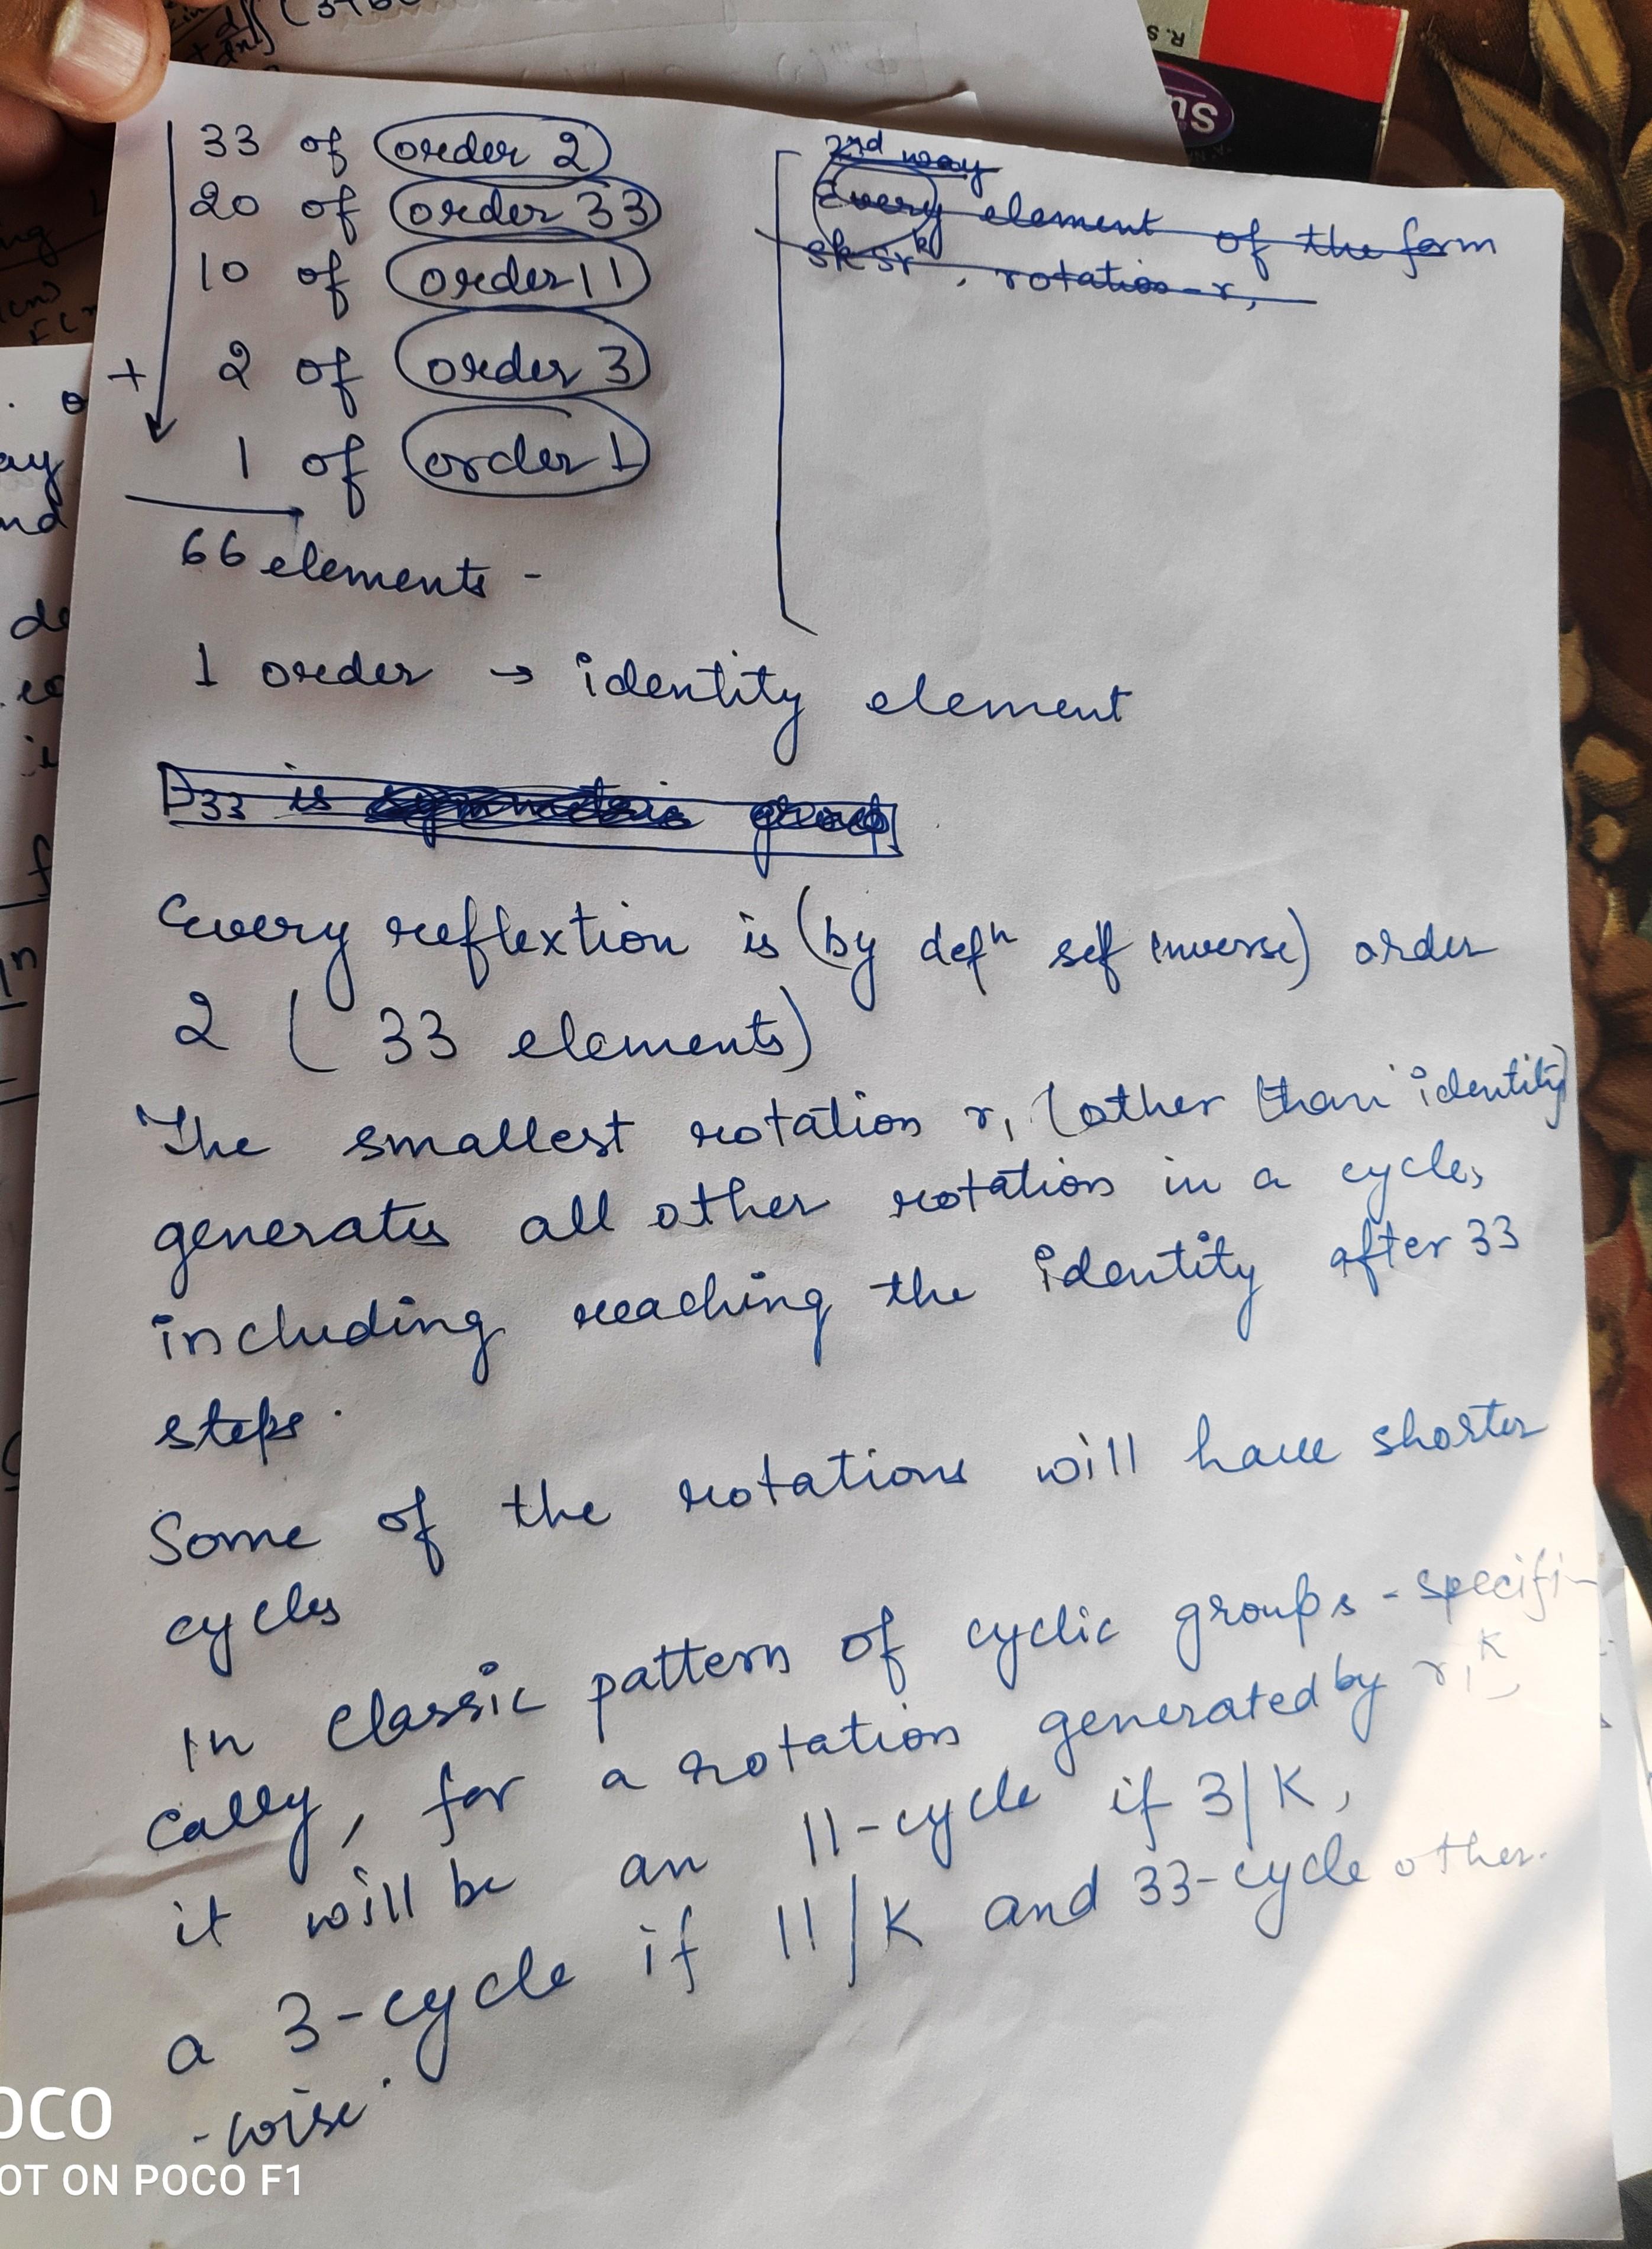 33 of order 2
20 of order 33
10 of order 11
+ 2 of order 3
1 of order 1
66 elements -
2nd way
Every element of the form
sksr^k, rotation - r,
1 order → identity element
D33 is symmetric group
Every reflextion is (by defn self inverse) order
2 ( 33 elements)
The smallest rotation r₁ (other than identity)
generates all other rotation in a cycle,
including reaching the identity after 33
steps.
Some of the rotations will have shorter
cycles
In classic pattern of cyclic groups - specifi-
cally, for a rotation generated by r₁^K,
it will be an 11-cycle if 3/K,
a 3-cycle if 11/K and 33-cycle other.
-wise.
OCO
OT ON POCO F1
R. S
Su